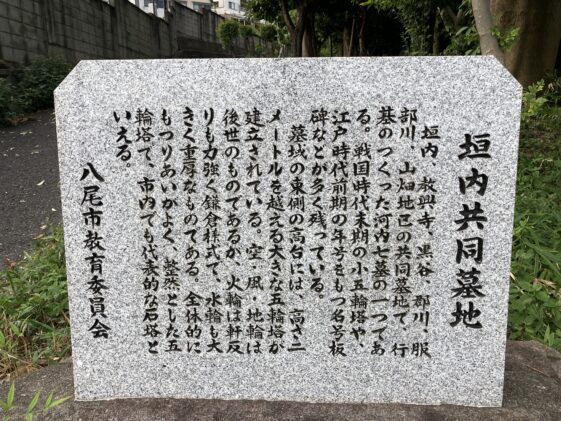 垣内共同墓地
垣内、教興寺、黒谷、郡川、服
部川、山畑地区の共同墓地で、行
基のつくった河内七墓の一つであ
る。戦国時代末期の小五輪塔や、
江戸時代前期の年号をもつ名号板
碑などが多く残っている。
墓域の東側の高台には、高さ二
メートルを越える大きな五輪塔が
建立されている。空・風・地輪は
後世のものであるが、火輪は軒反
りも力強く鎌倉様式で、水輪も大
きく重厚なものである。全体的に
もつりあいがよく、整然とした五
輪塔で、市内でも代表的な石塔と
いえる。
八尾市教育委員会